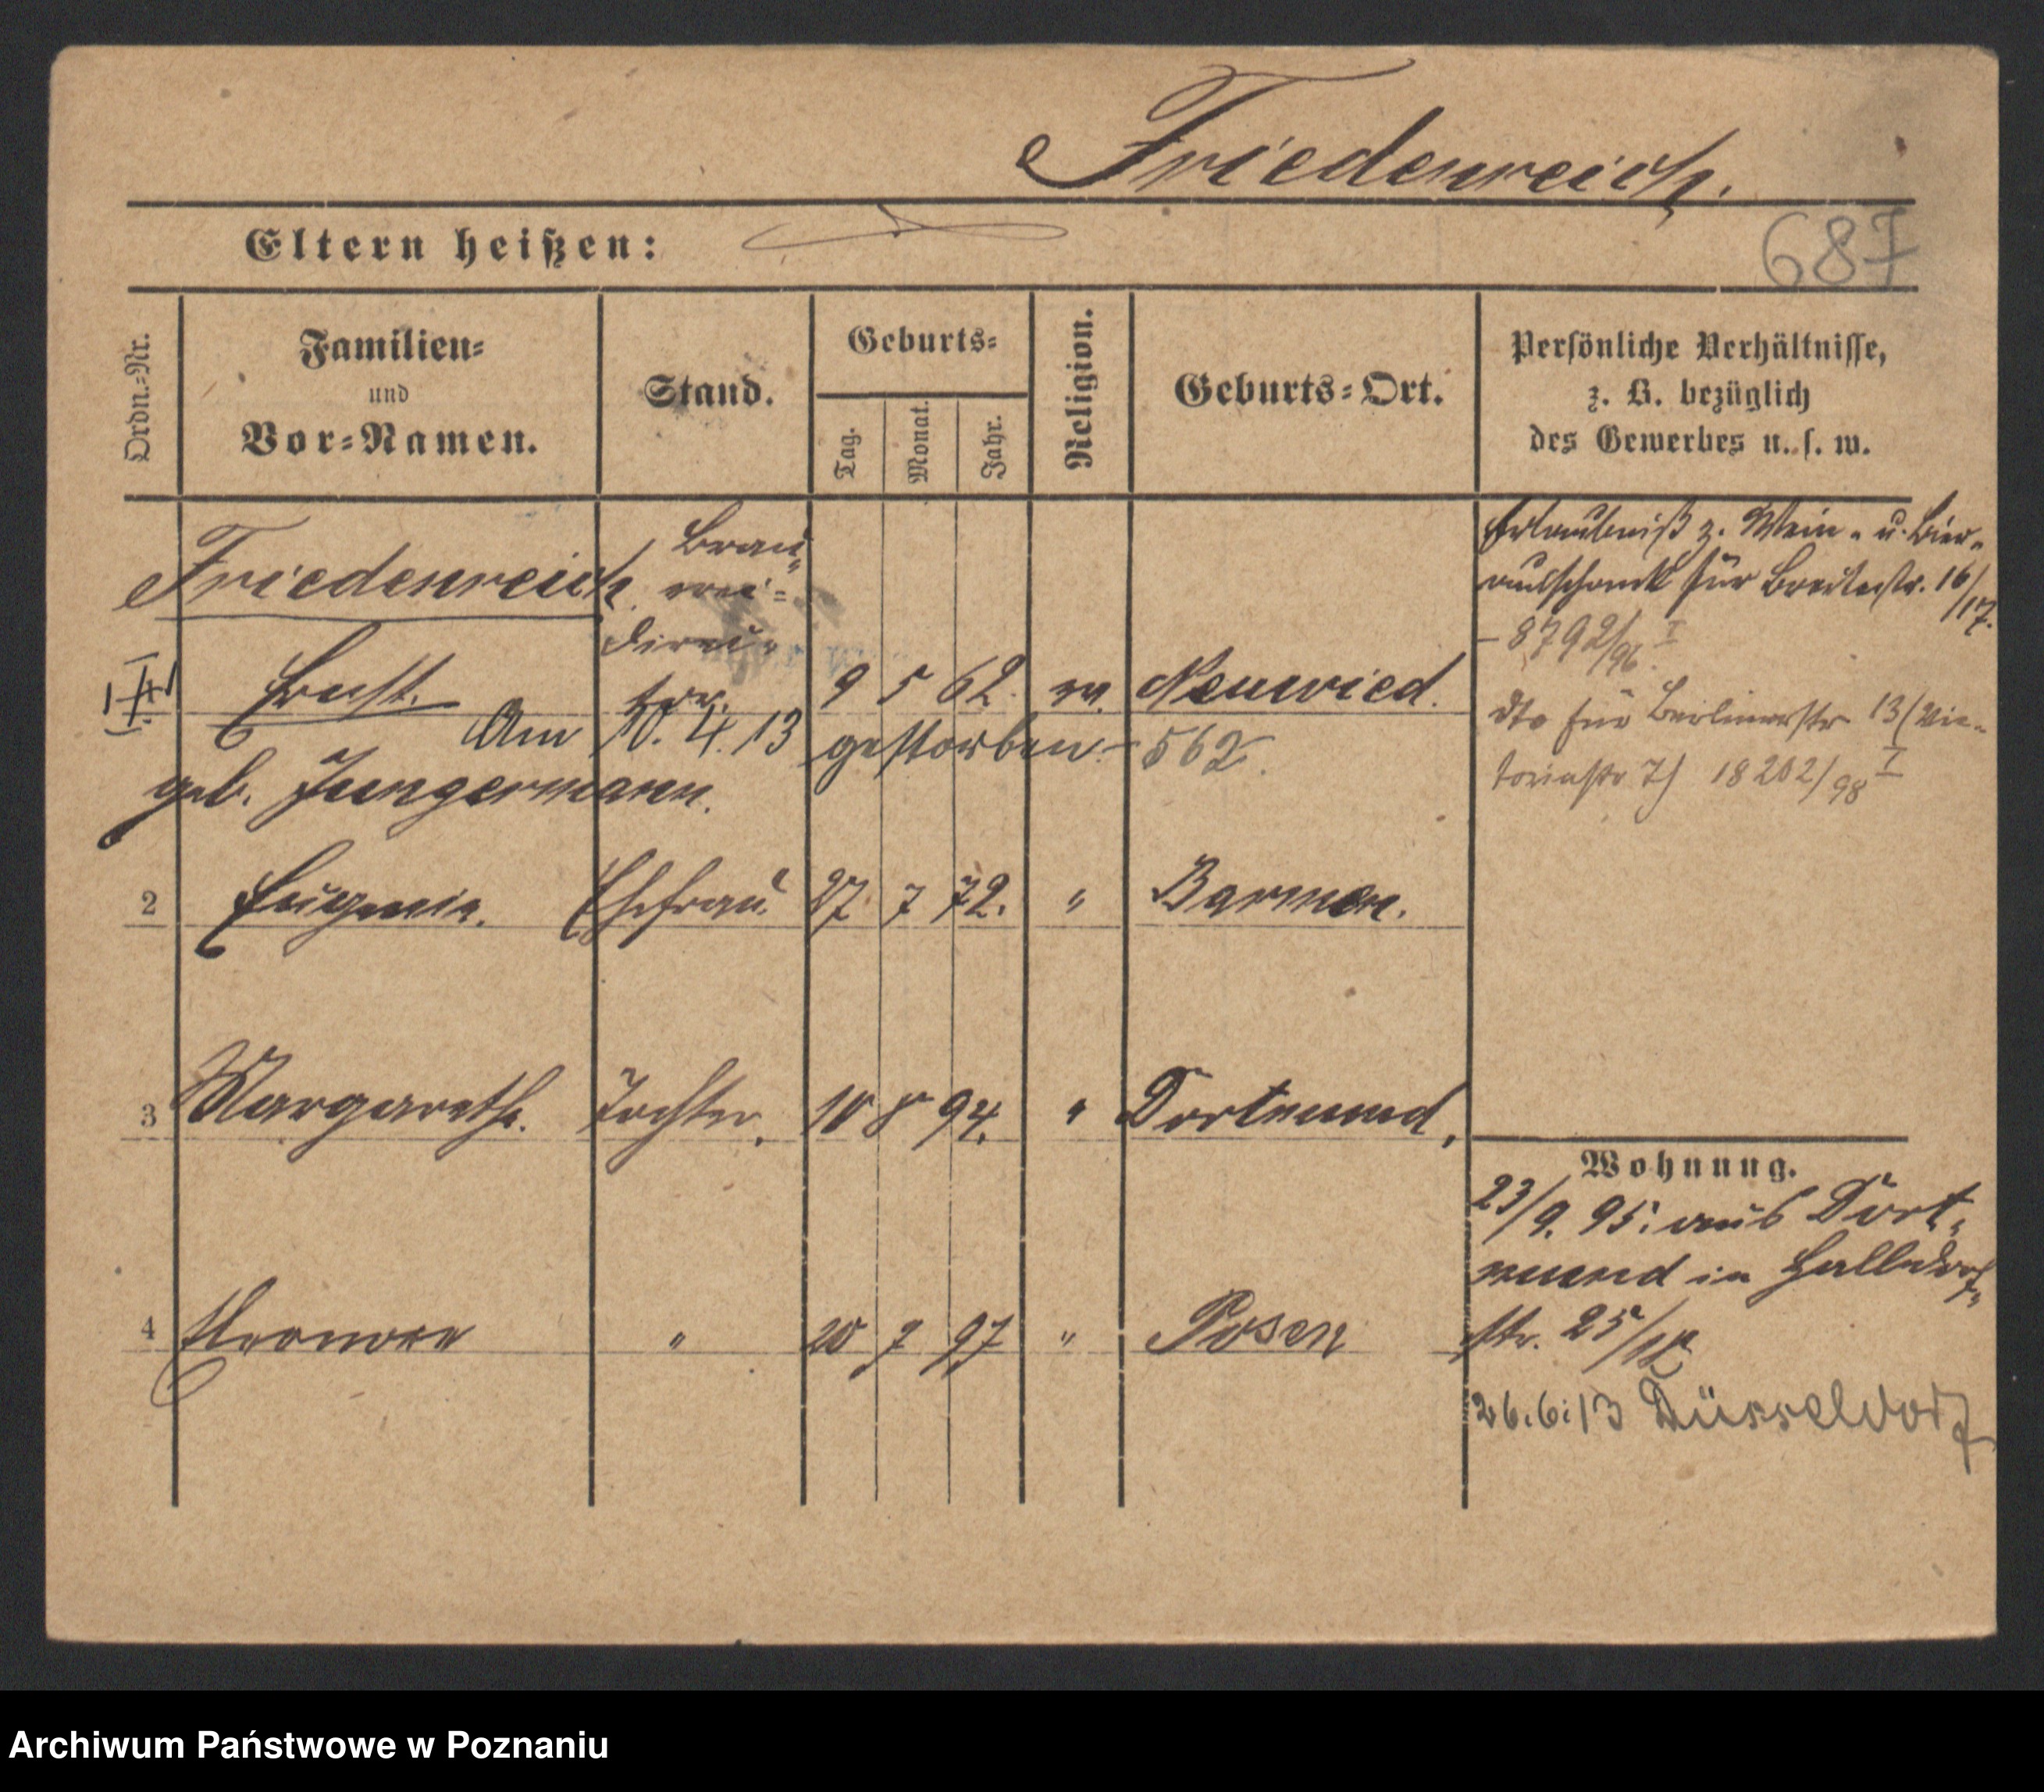 Friedenreich.
Eltern heißen:
687
Ordn.-Nr.
Familien-
und
Vor-Namen.
Stand.
Geburts-
Tag.
Monat.
Jahr.
Religion.
Geburts-Ort.
Persönliche Verhältnisse,
z. B. bezüglich
des Gewerbes u. s. w.
Friedenreich
Brau-
erei-
Direc-
tor.
Ernst. 9 5 62. ev. Neuwied.
Am 10. 4. 13 gestorben - 562.
geb. Jungermann.
2 Eugenie. Ehefrau. 27 7 72. " Barmen.
3 Margarethe. Tochter. 10 8 94. " Dortmund.
4 " 20 7 97 " Posen
Erlaubniß z. Wein- u. Bier-
ausschank für Breitestr. 16/17.
- 8792/96. I
dto für Berlinerstr 13 (Vic-
toriastr 7) 18202/98 I
Wohnung.
23/9. 95. aus Dort-
mund in Halbdorf-
str. 25/
26.6.13 Düsseldorf
Archiwum Państwowe w Poznaniu